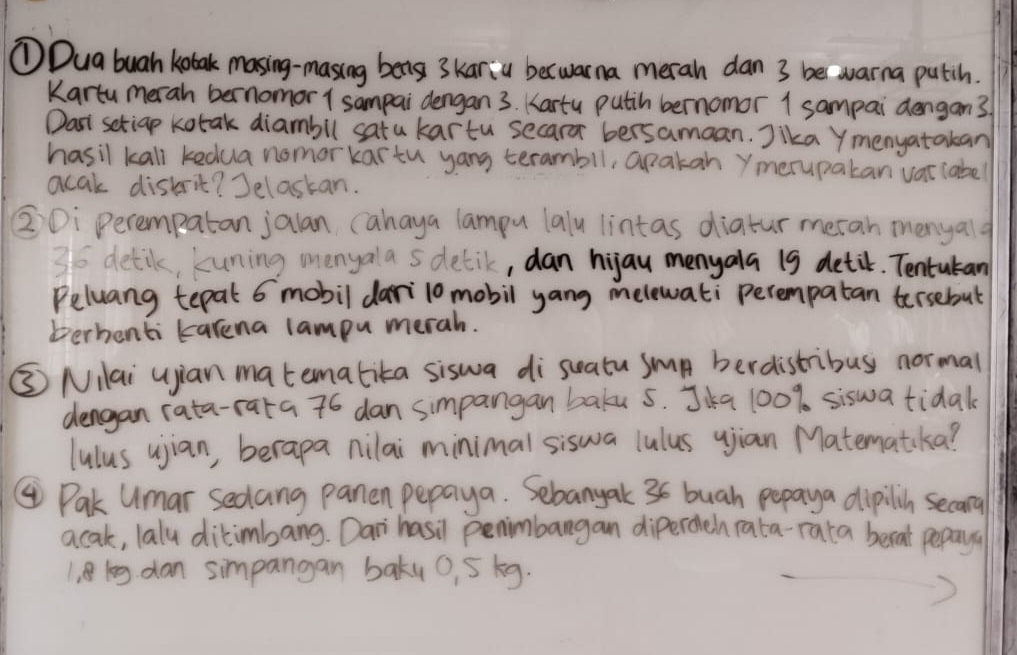 ① Dua buah kotak masing-masing berisi 3 kartu berwarna merah dan 3 berwarna putih.
Kartu merah bernomor 1 sampai dengan 3. Kartu putih bernomor 1 sampai dengan 3.
Dari setiap kotak diambil satu kartu secara bersamaan. Jika Y menyatakan
hasil kali kedua nomor kartu yang terambil, apakah Y merupakan variabel
acak diskrit? Jelaskan.
② Di perempatan jalan, cahaya lampu lalu lintas diatur merah menyala
36 detik, kuning menyala 5 detik, dan hijau menyala 19 detik. Tentukan
Peluang tepat 6 mobil dari 10 mobil yang melewati perempatan tersebut
berhenti karena lampu merah.
③ Nilai ujian matematika siswa di suatu SMA berdistribusi normal
dengan rata-rata 76 dan simpangan baku 5. Jika 100% siswa tidak
lulus ujian, berapa nilai minimal siswa lulus ujian Matematika?
④ Pak Umar sedang panen pepaya. Sebanyak 36 buah pepaya dipilih secara
acak, lalu ditimbang. Dari hasil penimbangan diperoleh rata-rata berat pepaya
1,8 kg dan simpangan baku 0,5 kg.